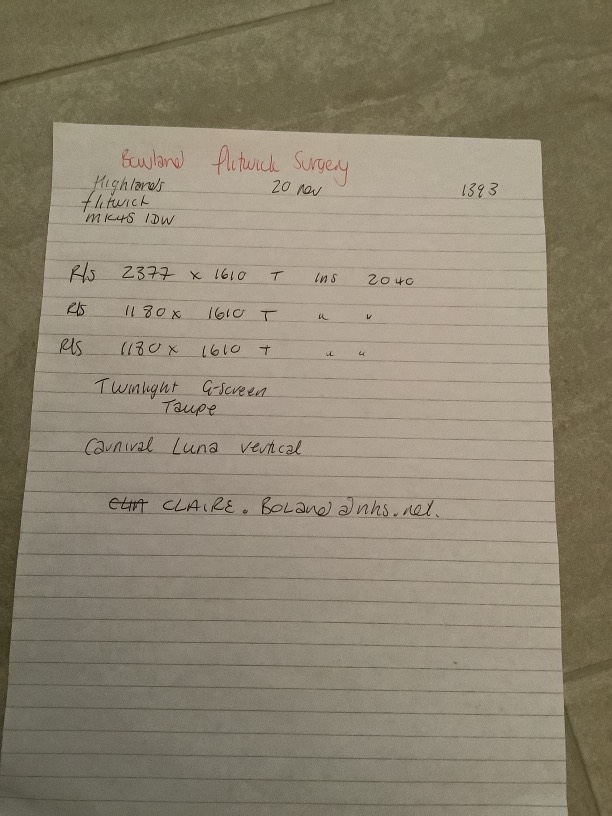 Bowland flitwick Surgery
Highlands 20 nov 1393
flitwick
MK45 1DW
R/S 2377 x 1610 T ins 2040
R/S 1180 x 1610 T " "
R/S 1180 x 1610 T " "
Twinlight G-screen
Taupe
Carnival Luna vertical
CLAIRE.BOLAND@nhs.net.